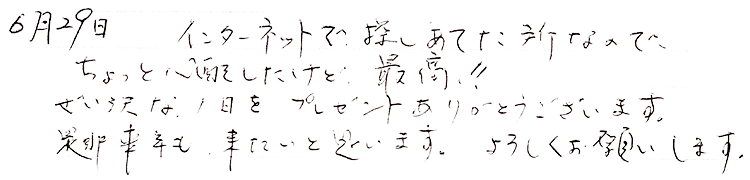 6月29日 インターネットで探しあてた所なので、
ちょっと心配したけど、最高!!
ぜい沢な1日をプレゼントありがとうございます。
是非来年も来たいと思います。よろしくお願いします。